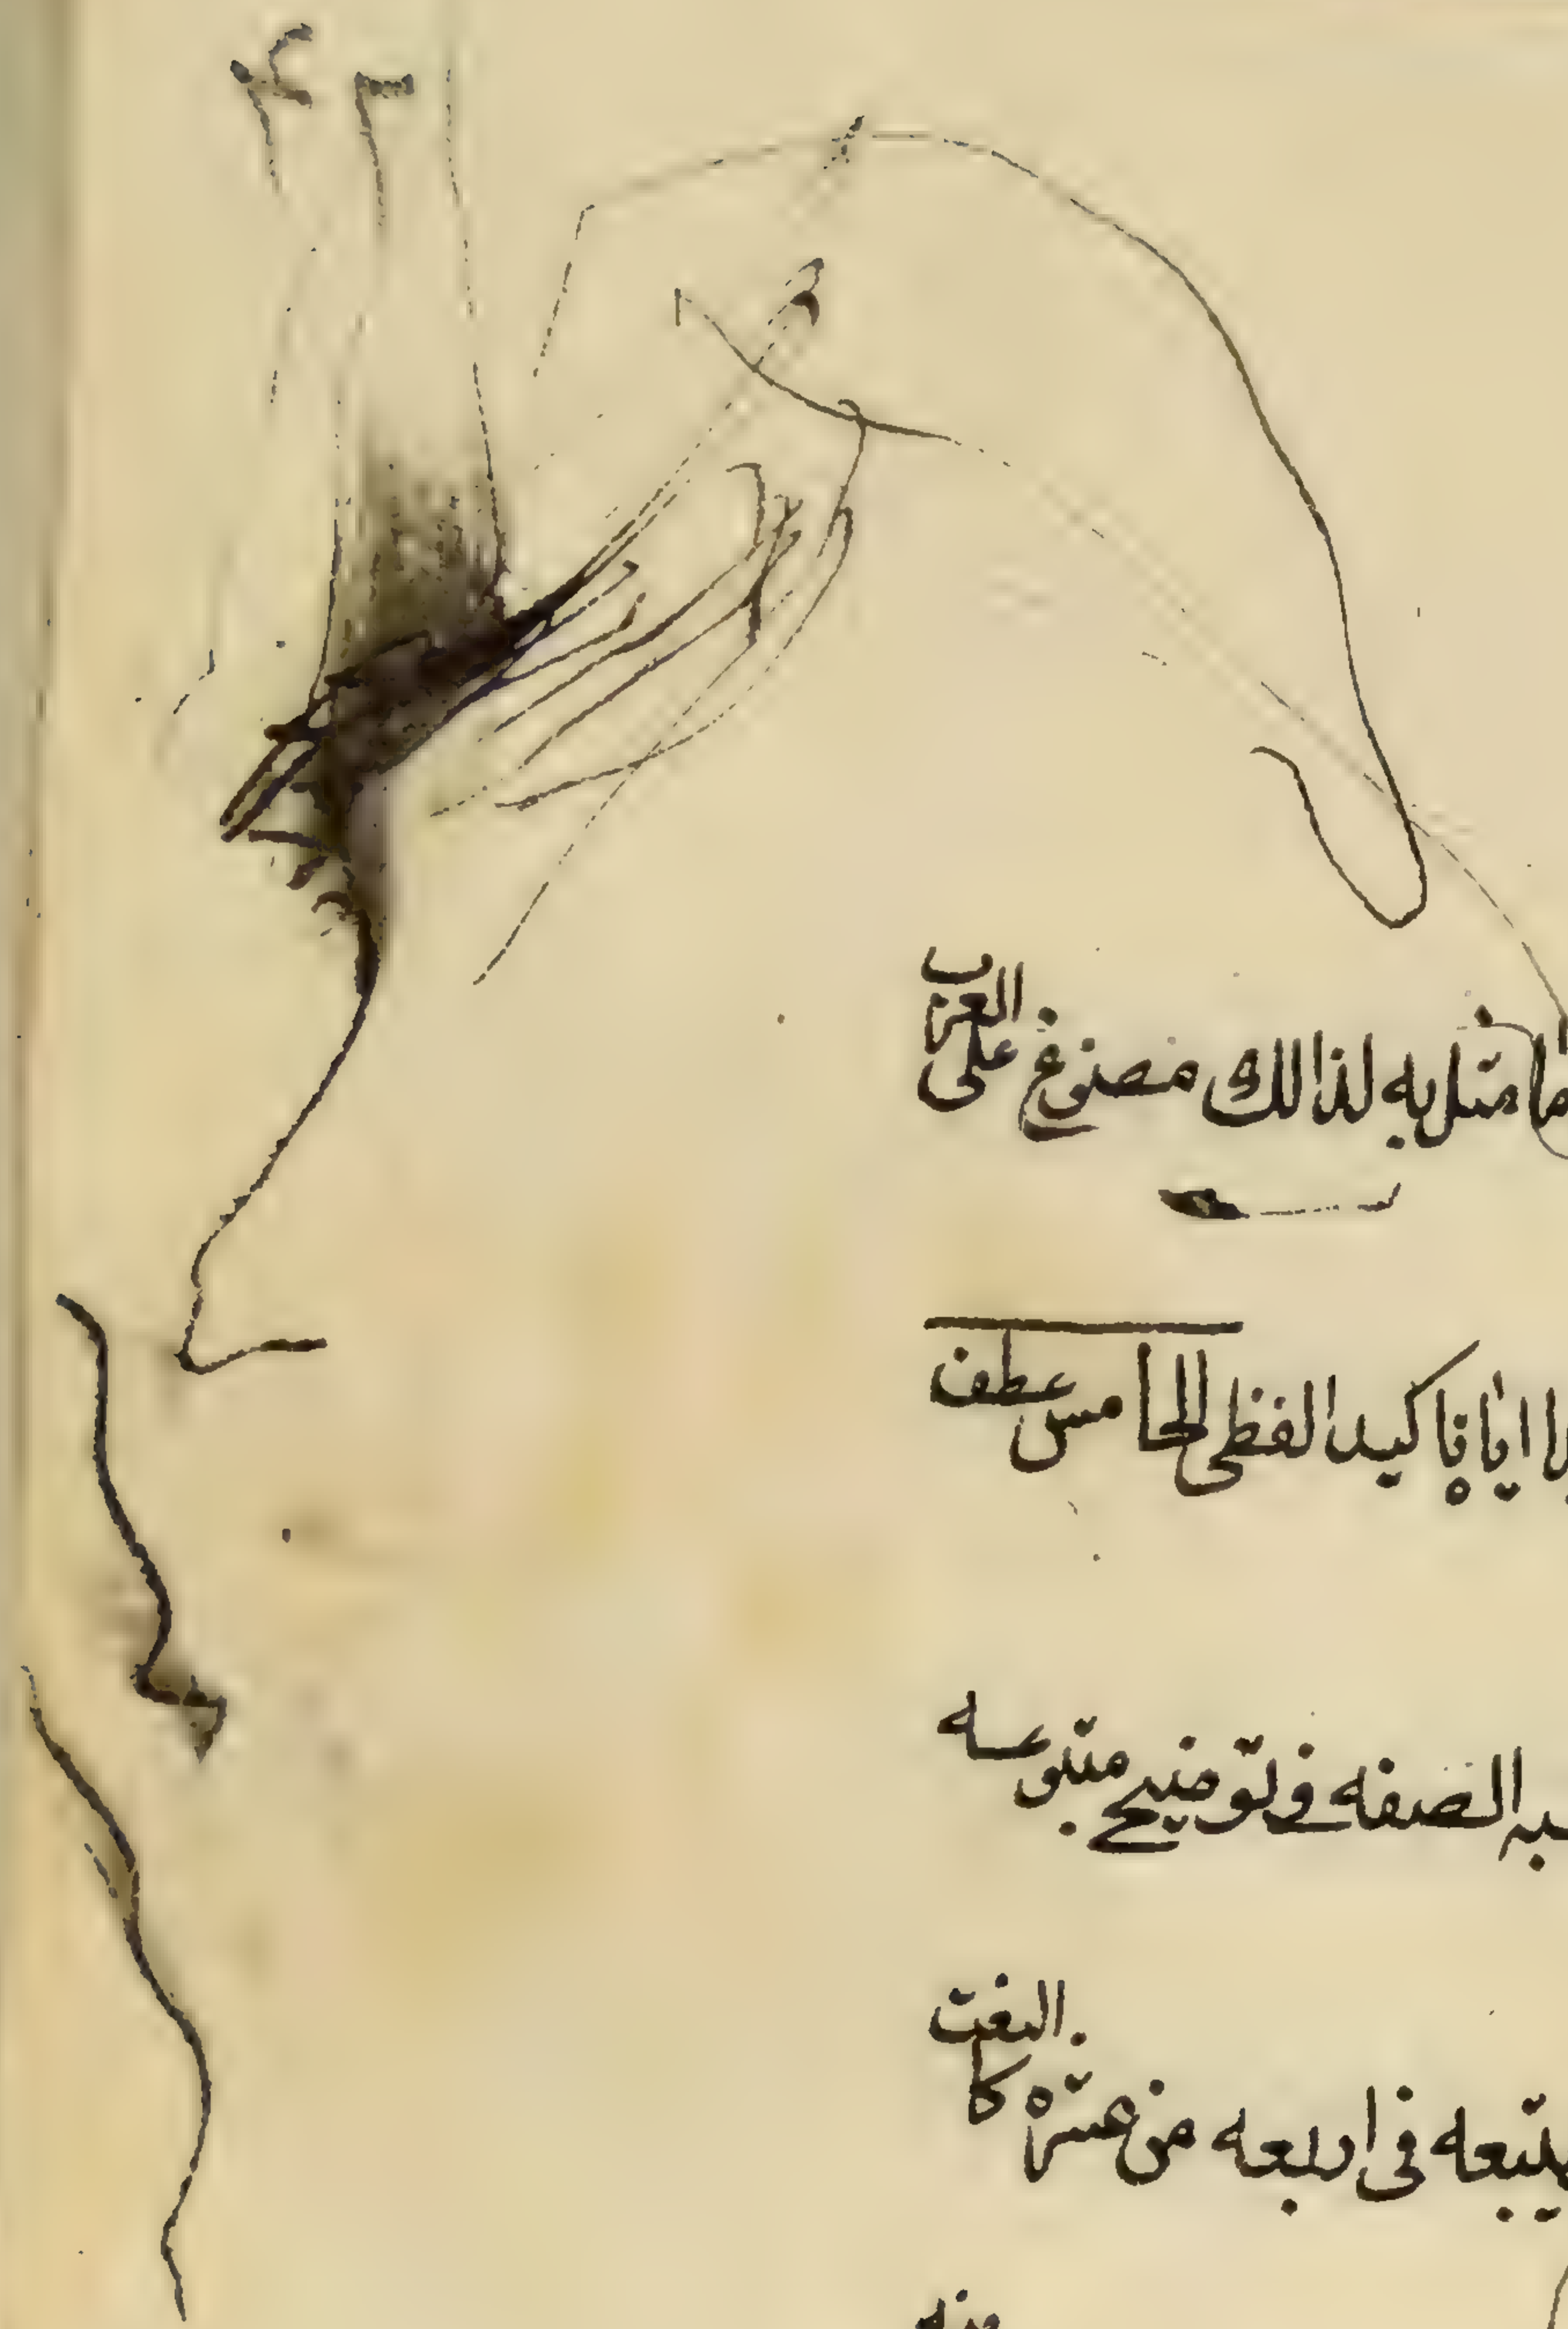 ما مثل به لذالك مصنوع على العرب
ايا تاكيد الفظي الخامس عطف
الصفه في توضيح متبوعه
يتبعه في اربعه من عشره كا النعت
منه